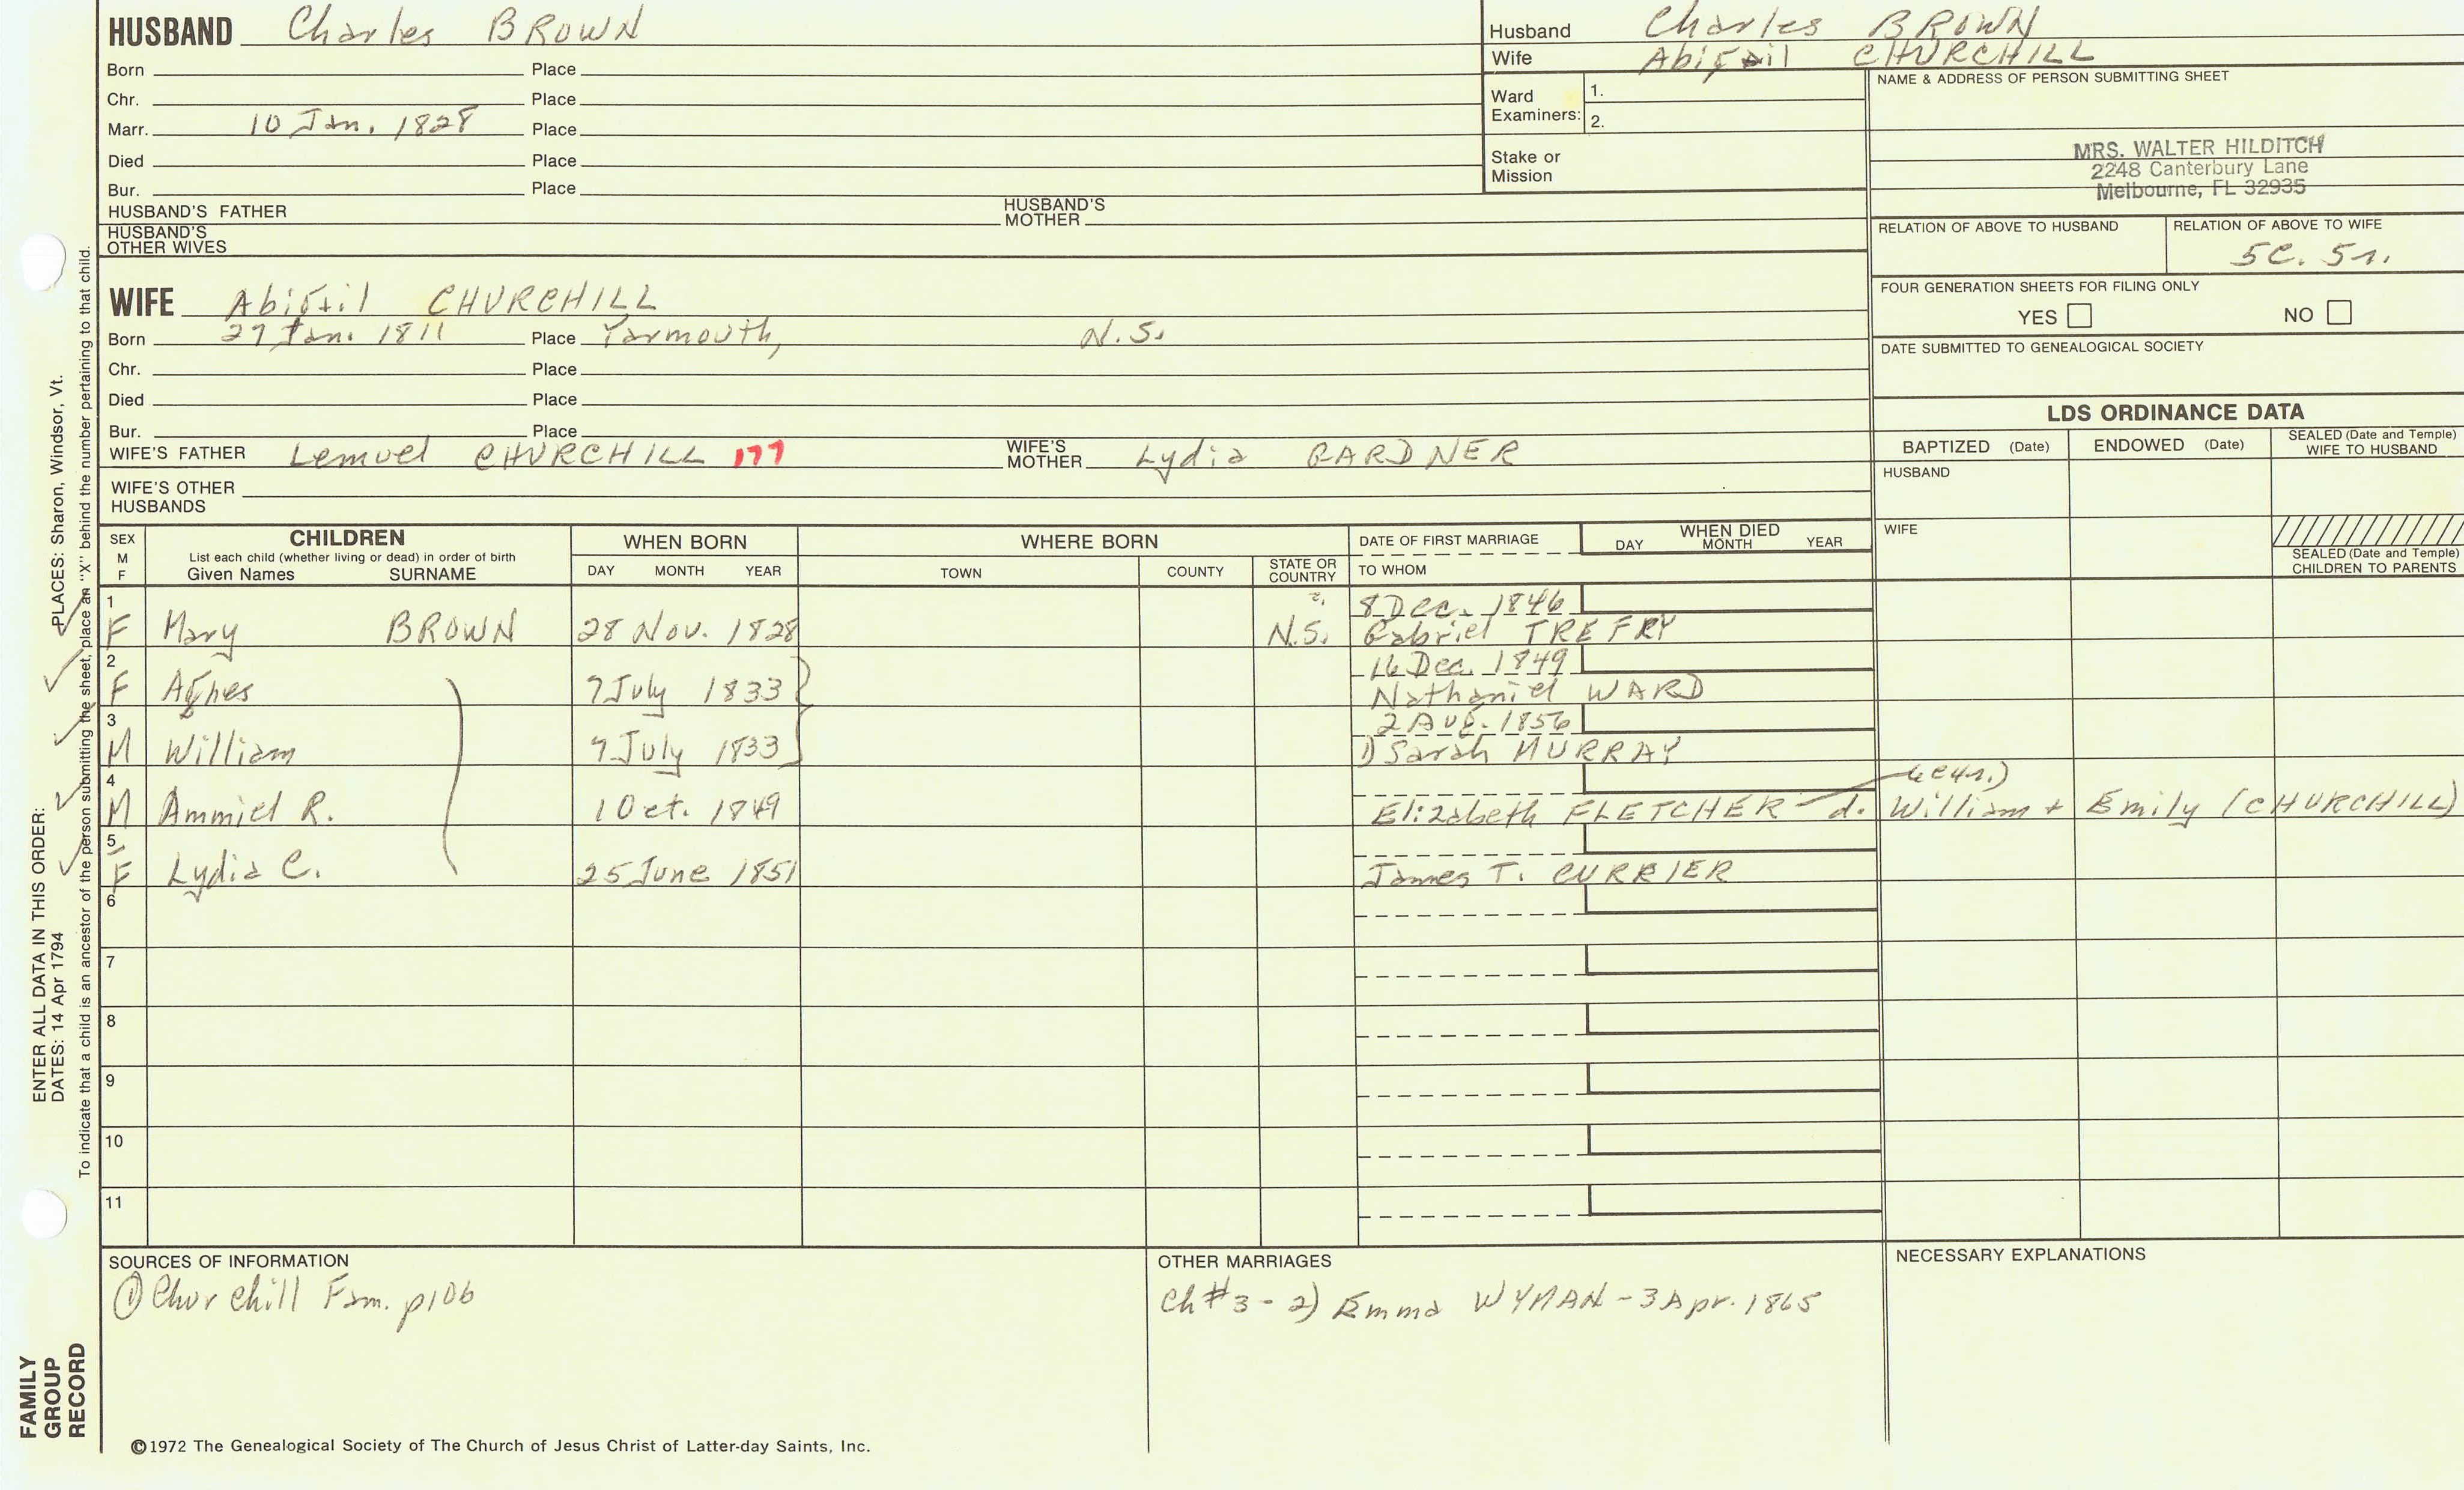 HUSBAND Charles BROWN
Born Place
Chr. Place
Marr. 10 Jan. 1828 Place
Died Place
Bur. Place
HUSBAND'S FATHER HUSBAND'S MOTHER
HUSBAND'S OTHER WIVES
Husband Charles BROWN
Wife Abigail CHURCHILL
Ward Examiners: 1.
2.
Stake or Mission
NAME & ADDRESS OF PERSON SUBMITTING SHEET
MRS. WALTER HILDITCH
2248 Canterbury Lane
Melbourne, FL 32935
RELATION OF ABOVE TO HUSBAND RELATION OF ABOVE TO WIFE
5C. 5r.
FOUR GENERATION SHEETS FOR FILING ONLY
YES NO
DATE SUBMITTED TO GENEALOGICAL SOCIETY
WIFE Abigail CHURCHILL
Born 27 Jan. 1811 Place Yarmouth, N.S.
Chr. Place
Died Place
Bur. Place
WIFE'S FATHER Lemuel CHURCHILL 177 WIFE'S MOTHER Lydia GARDNER
WIFE'S OTHER HUSBANDS
LDS ORDINANCE DATA
BAPTIZED (Date) ENDOWED (Date) SEALED (Date and Temple) WIFE TO HUSBAND
HUSBAND
WIFE
SEALED (Date and Temple) CHILDREN TO PARENTS
SEX M F CHILDREN List each child (whether living or dead) in order of birth Given Names SURNAME
WHEN BORN DAY MONTH YEAR
WHERE BORN TOWN COUNTY STATE OR COUNTRY
DATE OF FIRST MARRIAGE TO WHOM
WHEN DIED DAY MONTH YEAR
1 8 Dec. 1846
F Mary BROWN 28 Nov. 1828 N.S. Gabriel TREFRY
2 16 Dec. 1849
F Agnes 7 July 1833 Nathaniel WARD
3 2 Aug. 1856
M William 7 July 1833 1) Sarah MURRAY
4
M Ammiel R. 1 Oct. 1849 Elizabeth FLETCHER d. William + Emily (CHURCHILL)
5
F Lydia C. 25 June 1851 James T. CURRIER
6
7
8
9
10
11
SOURCES OF INFORMATION
① Churchill Fam. p106
OTHER MARRIAGES
Ch #3 - 2) Emma WYMAN - 3 Apr. 1865
NECESSARY EXPLANATIONS
©1972 The Genealogical Society of The Church of Jesus Christ of Latter-day Saints, Inc.
ENTER ALL DATA IN THIS ORDER:
DATES: 14 Apr 1794 PLACES: Sharon, Windsor, Vt.
To indicate that a child is an ancestor of the person submitting the sheet, place an "X" behind the number pertaining to that child.
FAMILY
GROUP
RECORD